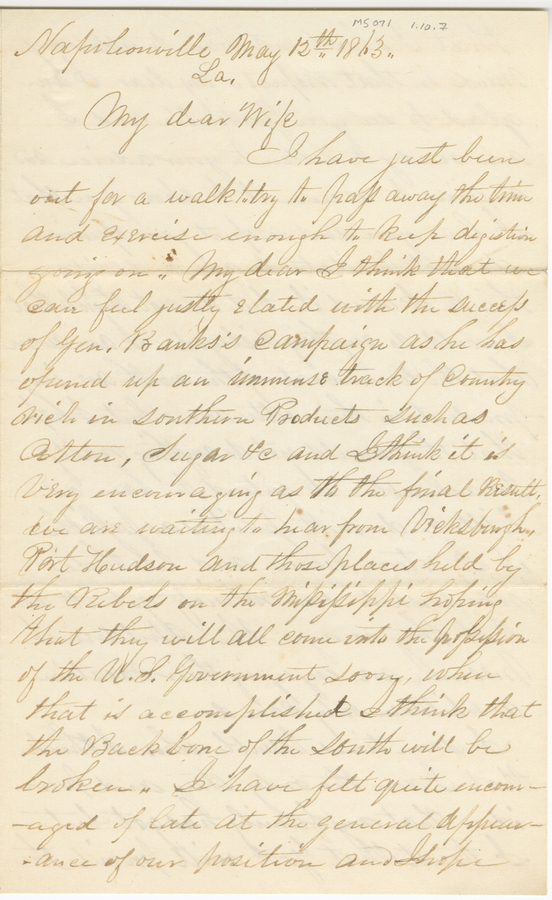 MS071 1.10.7
Napoleonville, May 12th 1863.
La.
My dear Wife
I have just been
out for a walk to try to pass away the time
and exercise enough to keep digestion
going on. My dear I think that we
can feel justly elated with the success
of Gen. Banks's Campaign as he has
opened up an immense track of Country
rich in Southern Products such as
Cotton, Sugar &c and I think it is
very encouraging as to the final Result,
we are waiting to hear from Vicksburgh,
Port Hudson and those places held by
the Rebels on the Missisippi hoping
that they will all come into the possession
of the U.S. Government soon, when
that is accomplished I think that
the Backbone of the South will be
broken. I have felt quite encour-
-aged of late at the general Appear-
-ance of our position and I hope